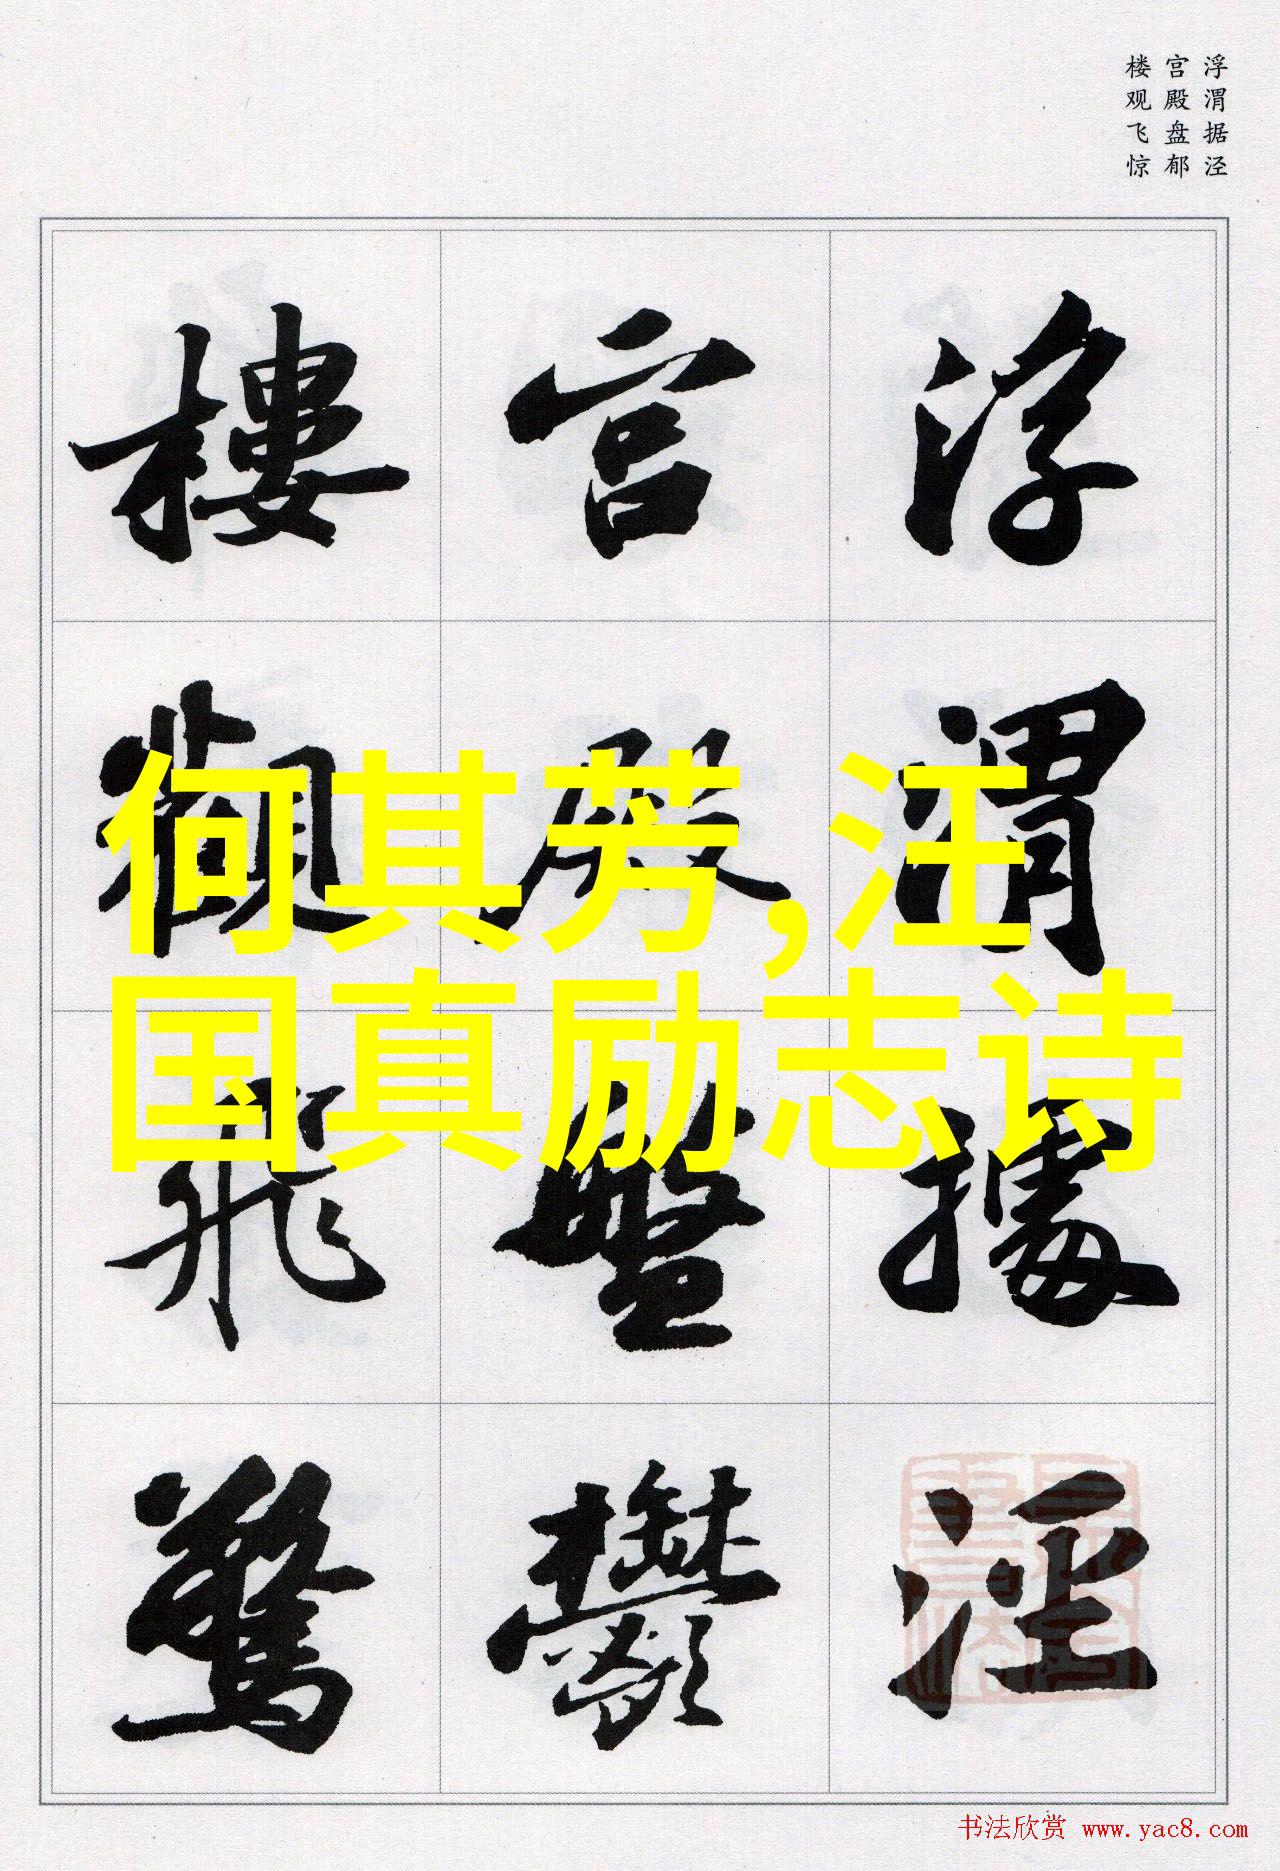 浮渭据泾
宫殿盘郁
楼观飞惊
浮渭據涇
宫殿盤鬱
樓觀飛驚
何其芳,汪
国真励志诗
书法欣赏 www.yac8.com